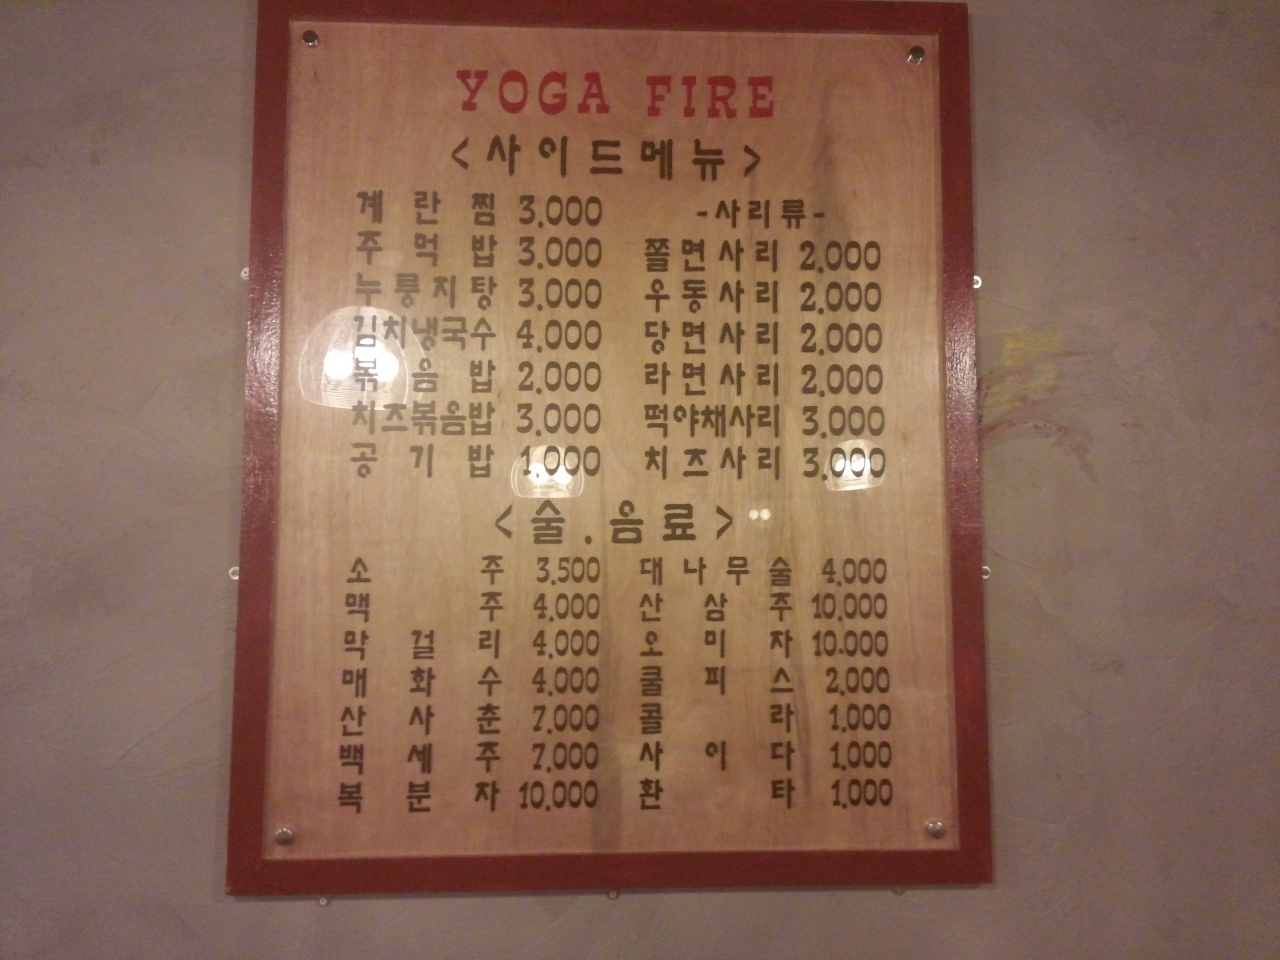 YOGA FIRE
<사이드메뉴>
계란찜 3,000
주먹밥 3,000
누룽지탕 3,000
김치냉국수 4,000
볶음밥 2,000
치즈볶음밥 3,000
공기밥 1,000
-사리류-
쫄면사리 2,000
우동사리 2,000
당면사리 2,000
라면사리 2,000
떡야채사리 3,000
치즈사리 3,000
<술.음료>
소주 3,500
맥주 4,000
막걸리 4,000
매화수 4,000
산사춘 7,000
백세주 7,000
복분자 10,000
대나무술 4,000
산삼주 10,000
오미자 10.000
쿨피스 2,000
콜라 1,000
사이다 1,000
환타 1,000